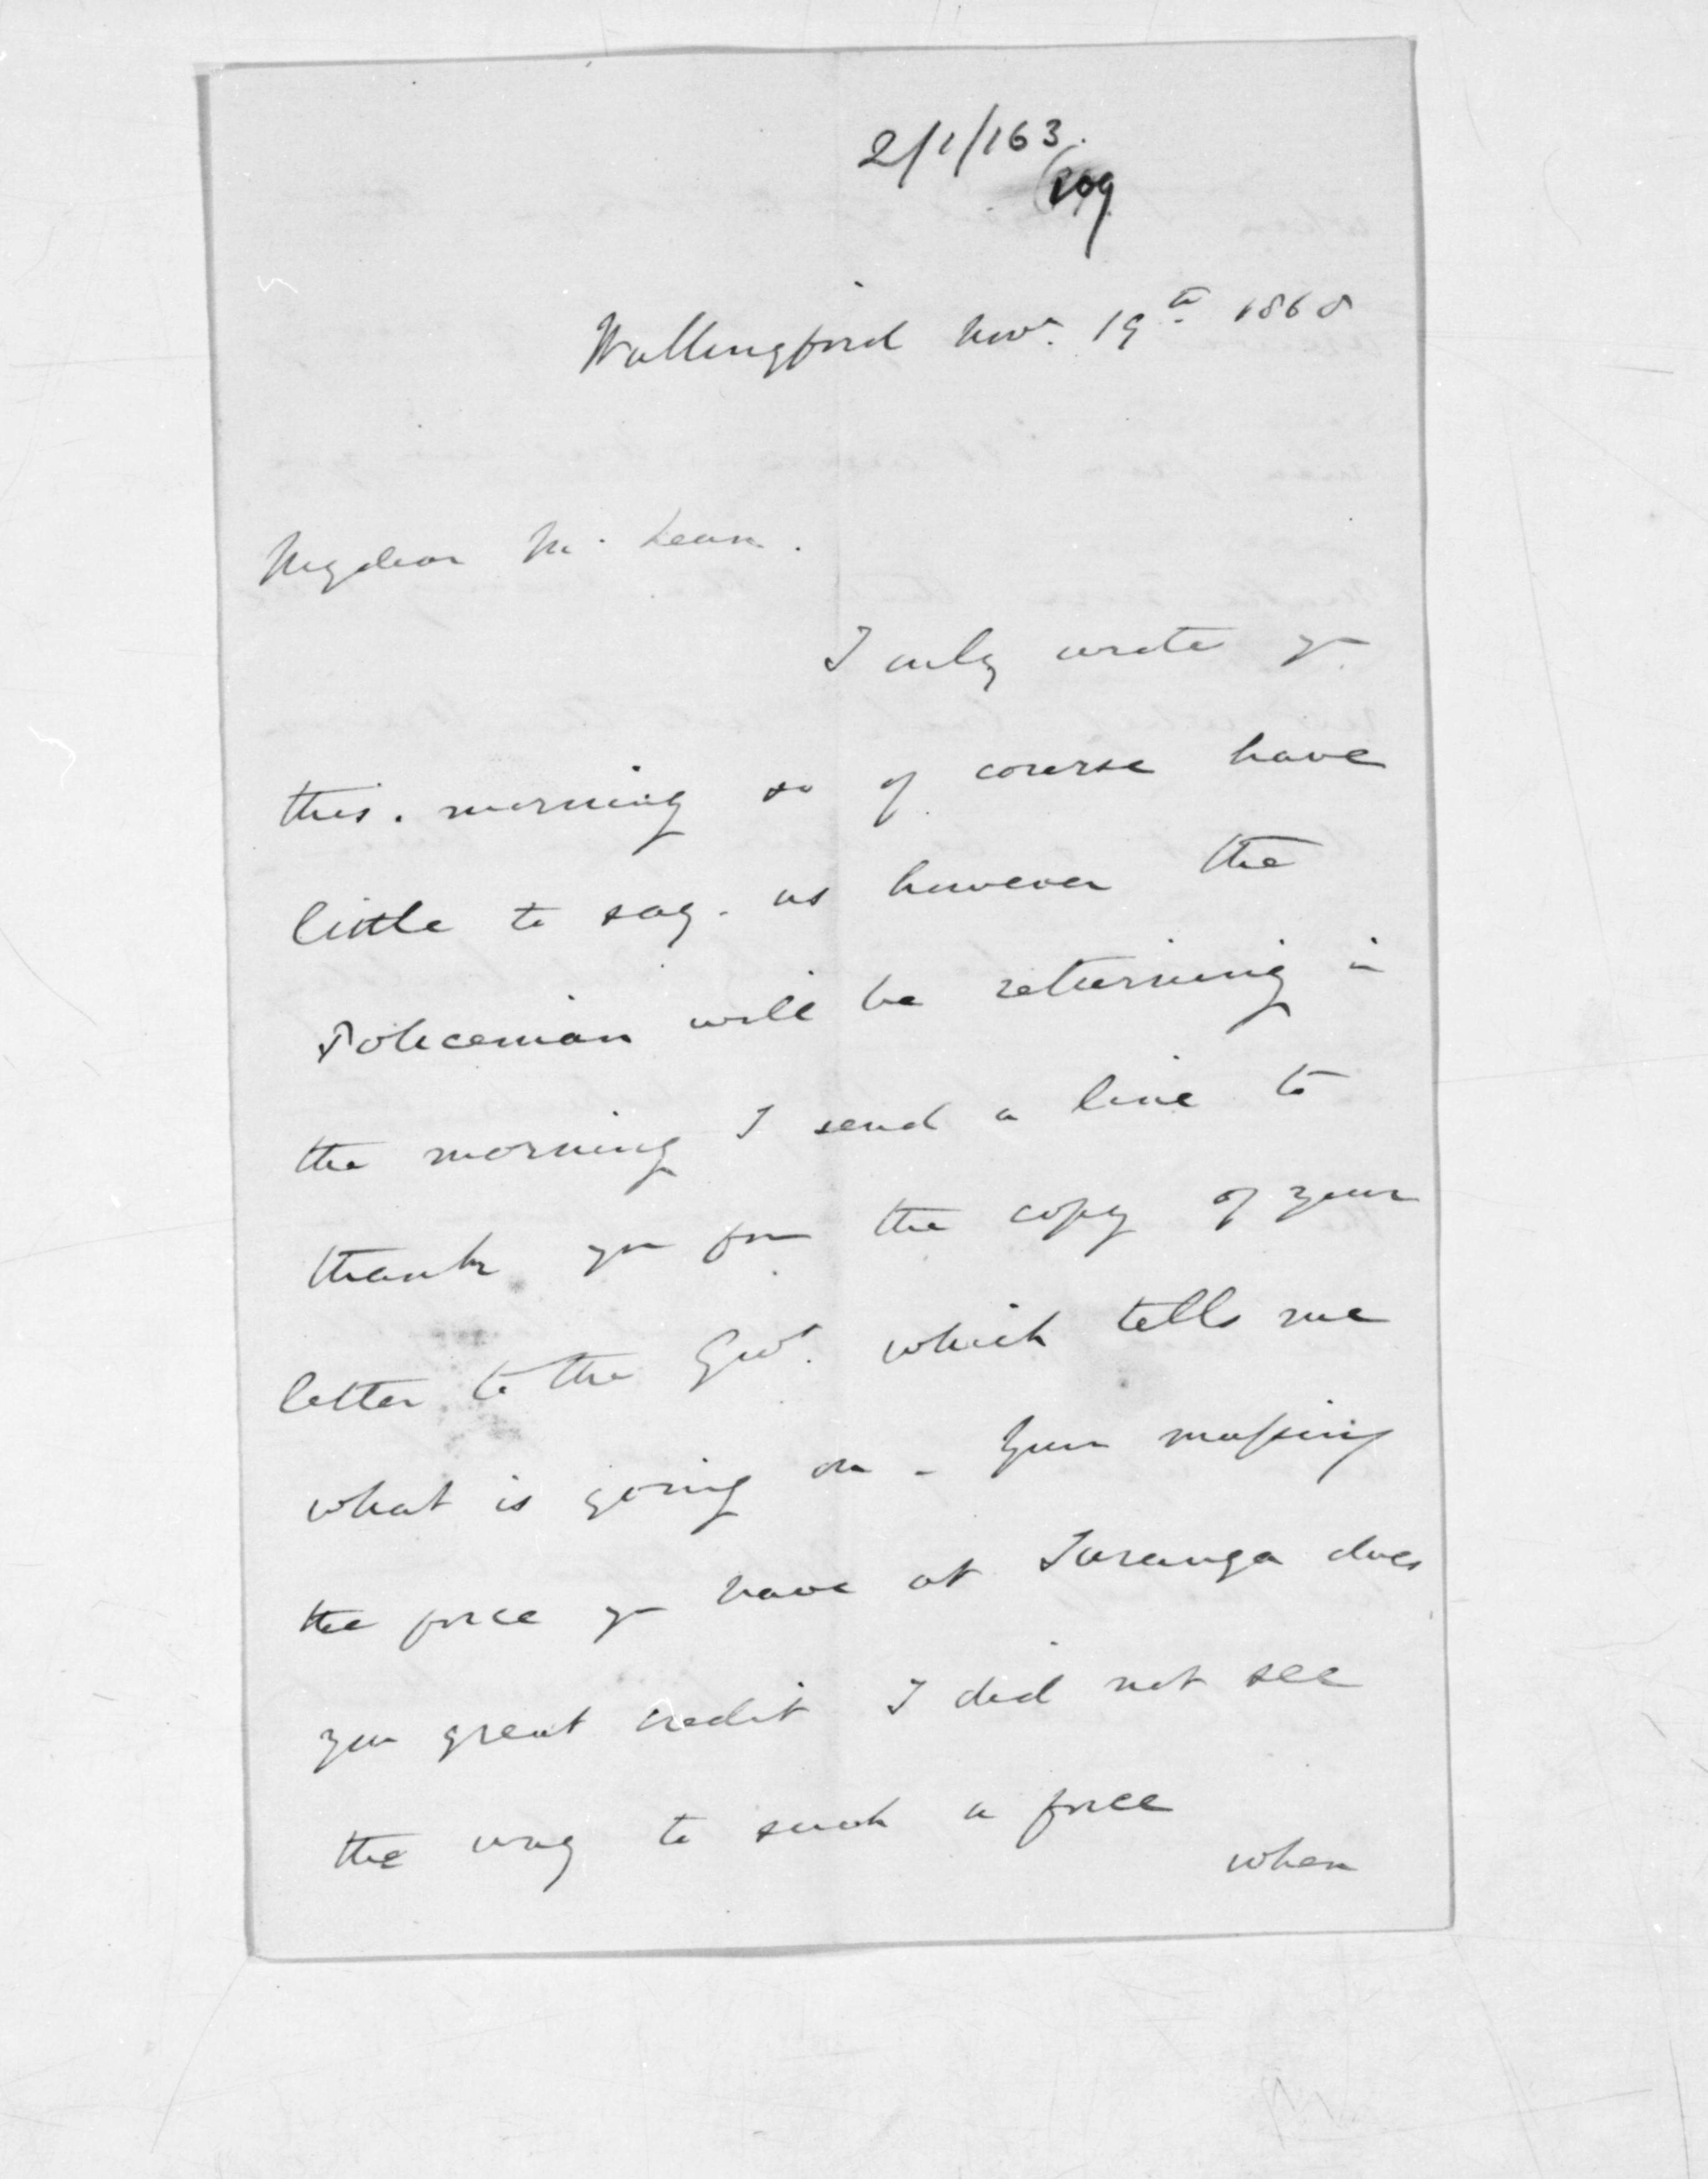 2/1/163.
209
Wallingford Novr. 19th 1868
My dear Mc.Lean.
I only wrote you
this. morning so of course have
little to say. as however the
Policeman will be returning in
the morning I send a line to
thank you for the copy of your
letter to the Govt. which tells me
what is going on - Your massing
the force you have at Turanga does
you great credit I did not see
the way to such a force
when